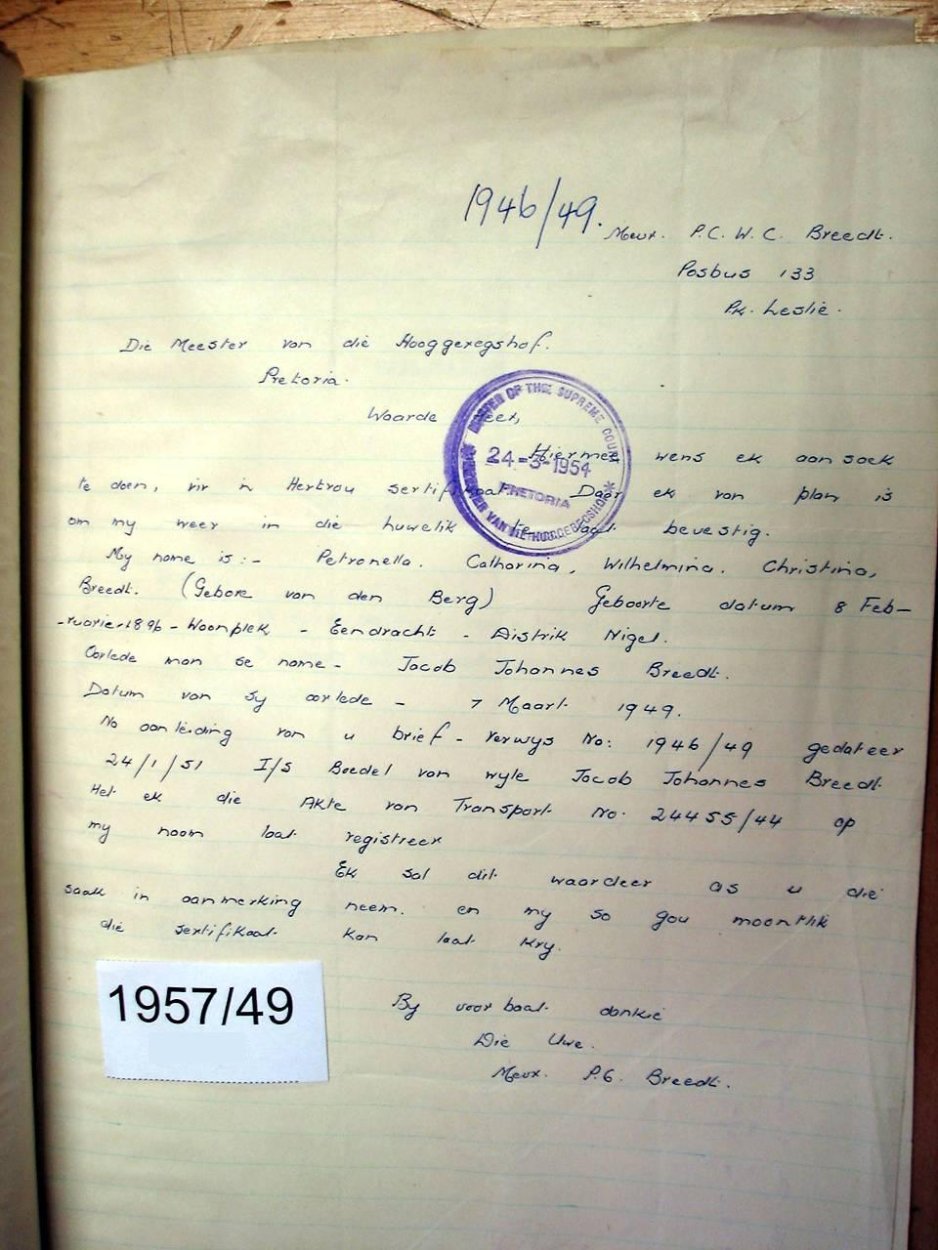 1946/49.
Mevr. P.C.W.C. Breedt.
Posbus 133
Pk. Leslie.
Die Meester van die Hooggeregshof.
Pretoria.
Waarde Heer,
MASTER OF THE SUPREME COURT
24-3-1954
PRETORIA
MEESTER VAN DIE HOOGGEREGSHOF
Hiermee wens ek aansoek
te doen, vir 'n Hertrou sertifikaat. Daar ek van plan is
om my weer in die huwelik te laat bevestig.
My name is:- Petronella. Catharina, Wilhelmina. Christina,
Breedt. (Gebore van den Berg) Geboorte datum 8 Feb-
-ruarie-1896 - Woonplek - Eendracht - Distrik Nigel.
Oorlede man se name - Jacob Johannes Breedt.
Datum van sy oorlede - 7 Maart 1949.
Na aanleiding van u brief - Verwys No: 1946/49 gedateer
24/1/51 I/S Boedel van wyle Jacob Johannes Breedt
Het ek die Akte van Transport No. 24455/44 op
my naam laat registreer
Ek sal dit waardeer as u die
saak in aanmerking neem. en my so gou moontlik
die sertifikaat kan laat kry.
By voorbaat dankie
Die Uwe.
Mevr. P.C. Breedt.
1957/49